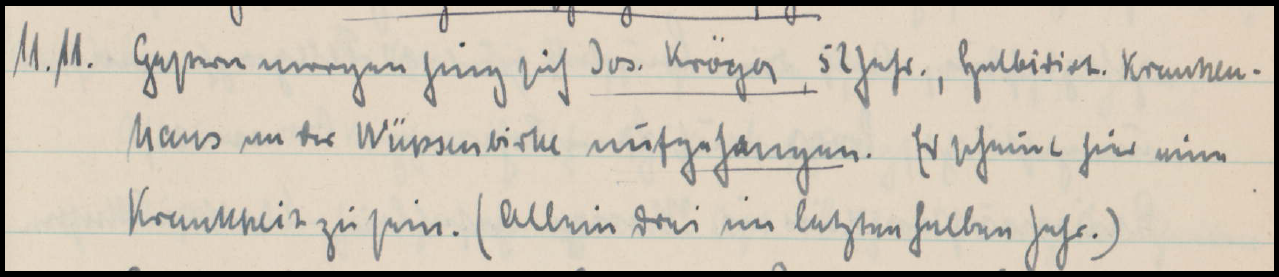 11.11. Gestern morgen hing sich Jos. Kröger, 52 Jahr., Halbidiot. Kranken-
haus an der aufgehangen. Es scheint hier eine
Krankheit zu sein. (Allein drei im letzten halben Jahr.)